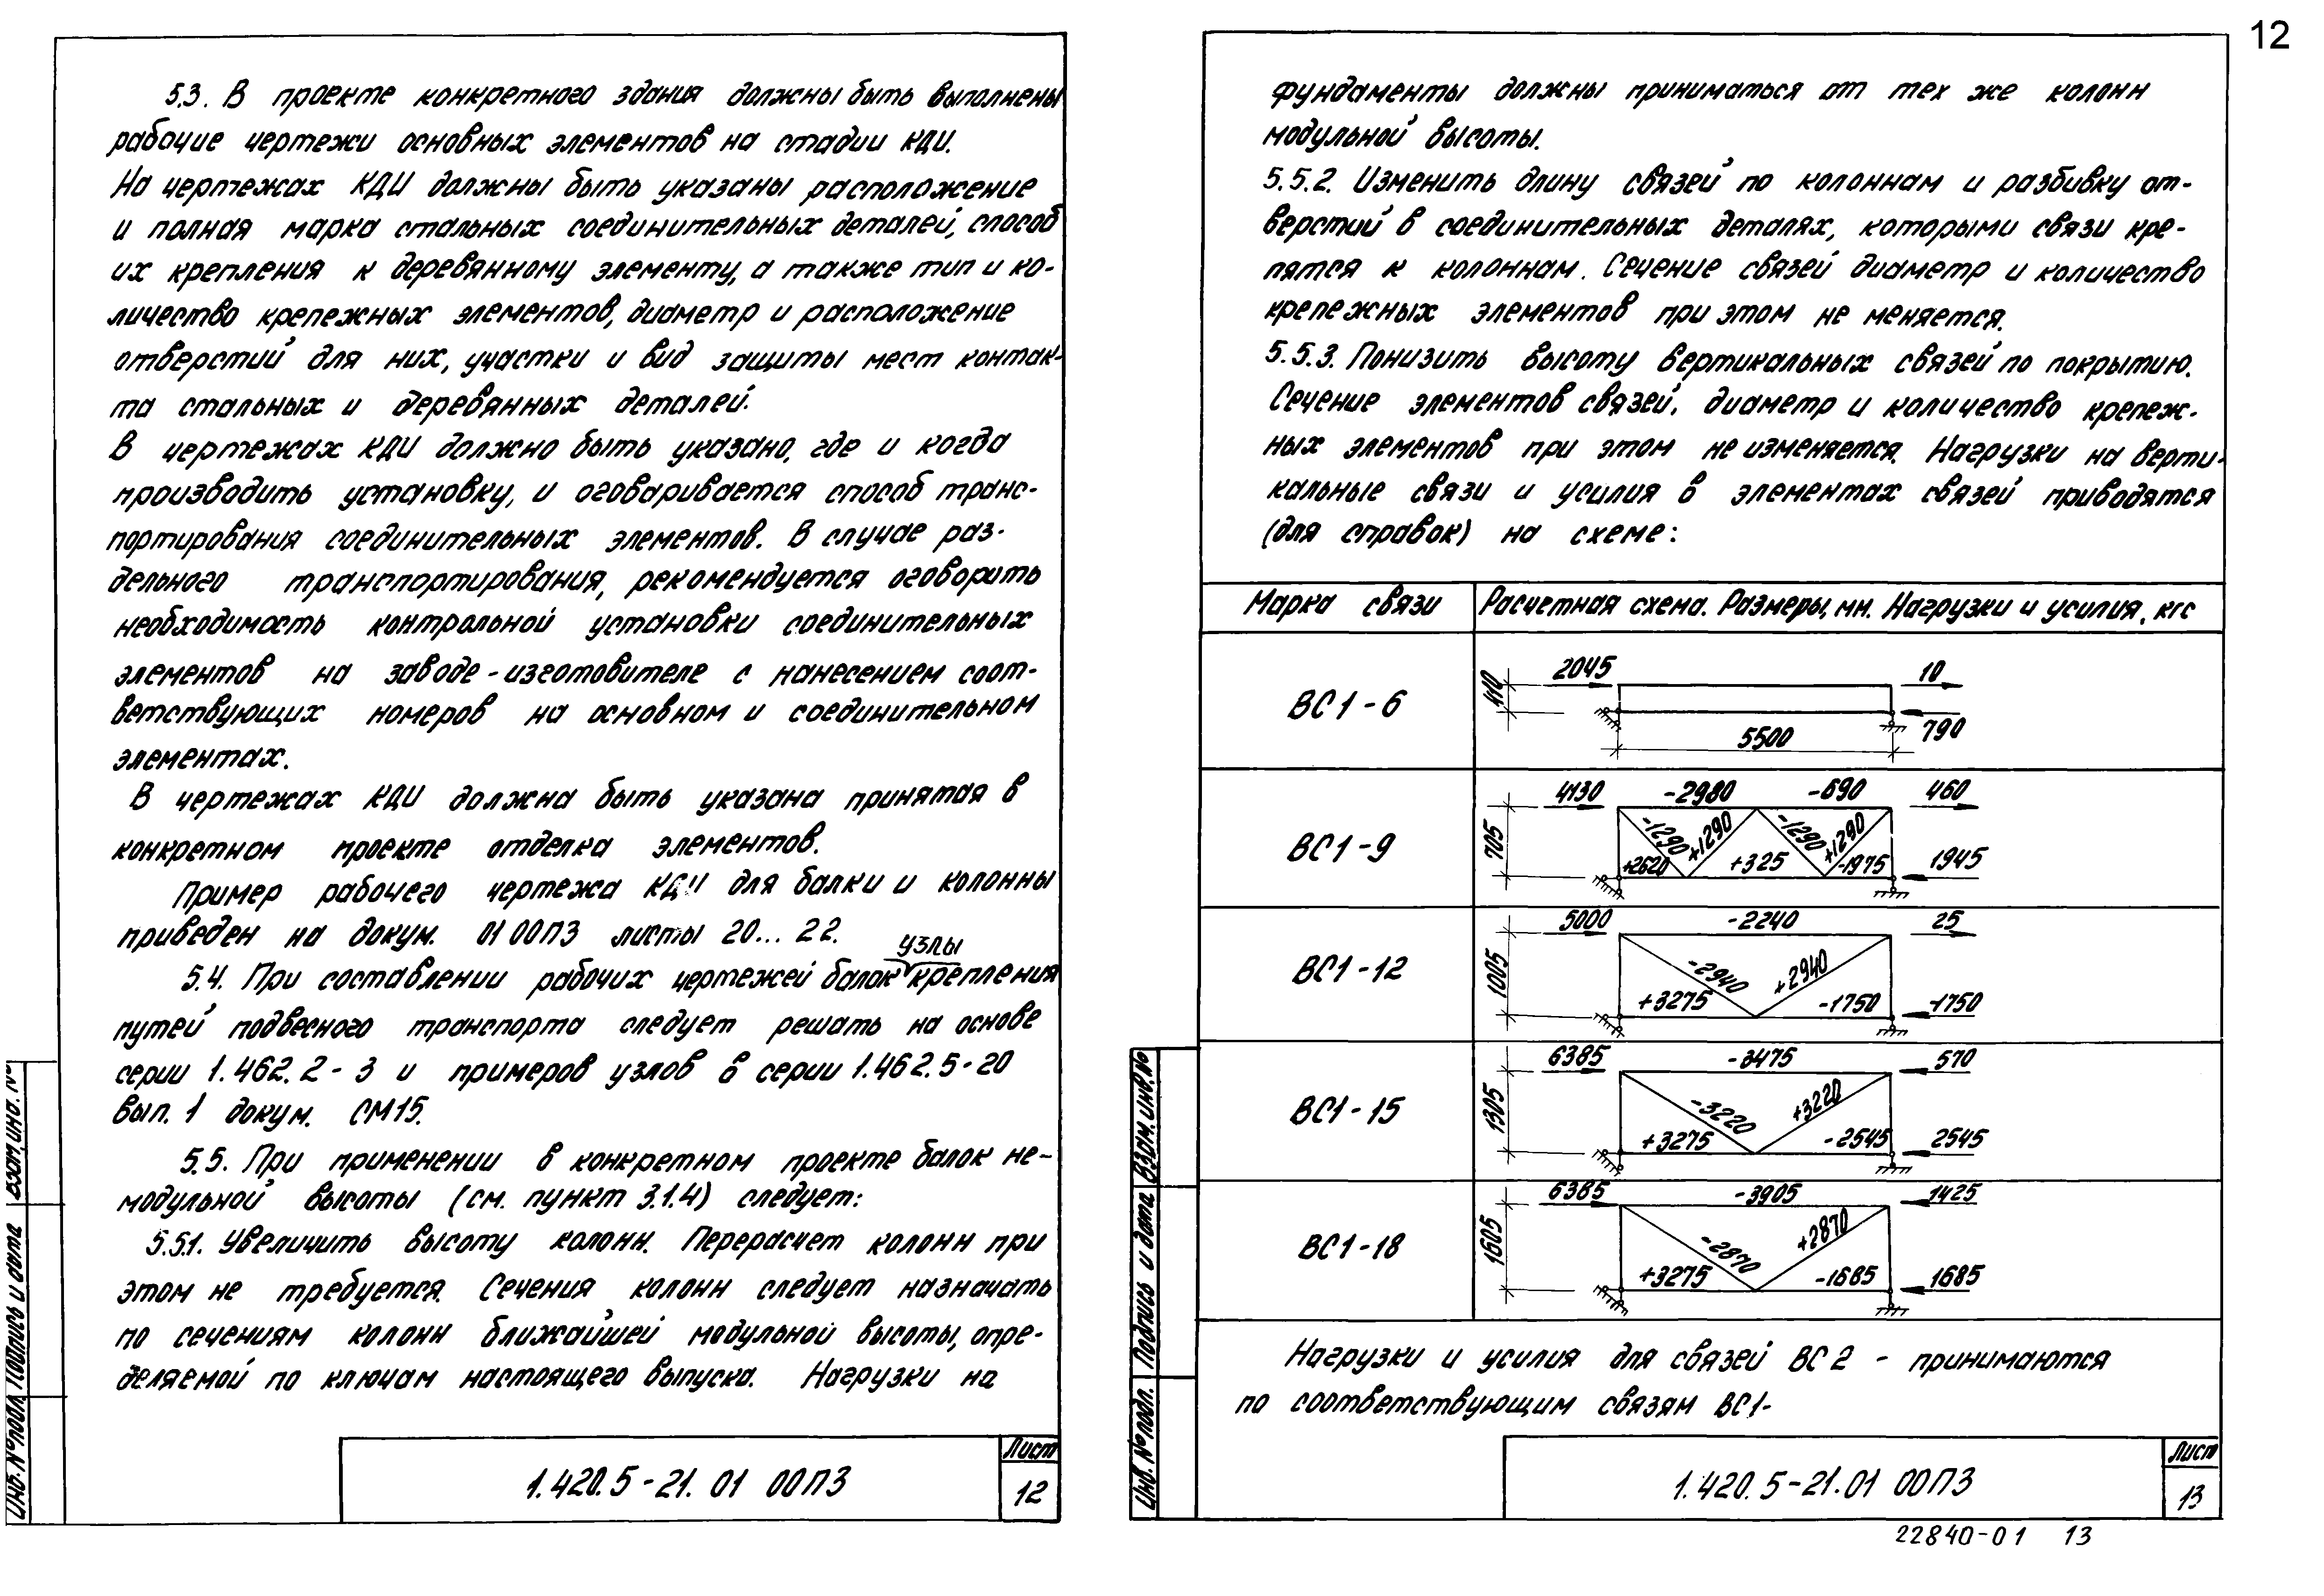 12
5.3. В проекте конкретного здания должны быть выполнены
рабочие чертежи основных элементов на стадии КДИ.
На чертежах КДИ должны быть указаны расположение
и полная марка стальных соединительных деталей, способ
их крепления к деревянному элементу, а также тип и ко-
личество крепежных элементов, диаметр и расположение
отверстий для них, участки и вид защиты мест контак-
та стальных и деревянных деталей.
В чертежах КДИ должно быть указано, где и когда
производить установку, и оговаривается способ транс-
портирования соединительных элементов. В случае раз-
дельного транспортирования, рекомендуется оговорить
необходимость контрольной установки соединительных
элементов на заводе-изготовителе с нанесением соот-
ветствующих номеров на основном и соединительном
элементах.
В чертежах КДИ должна быть указана принятая в
конкретном проекте отделка элементов.
Пример рабочего чертежа КДИ для балки и колонны
приведен на докум. 01 00ПЗ листы 20... 22.
узлы
5.4. При составлении рабочих чертежей балок крепления
путей подвесного транспорта следует решать на основе
серии 1.462.2-3 и примеров узлов в серии 1.462.5-20
вып. 1 докум. СМ15.
5.5. При применении в конкретном проекте балок не-
модульной высоты (см. пункт 3.1.4) следует:
5.5.1. Увеличить высоту колонн. Перерасчет колонн при
этом не требуется. Сечения колонн следует назначать
по сечениям колонн ближайшей модульной высоты, опре-
деляемой по ключам настоящего выпуска. Нагрузки на
Инв. № подл. Подпись и дата Взам. инв. №
1.420.5-21.01 00ПЗ
Лист
12
фундаменты должны приниматься от тех же колонн
модульной высоты.
5.5.2. Изменить длину связей по колоннам и разбивку от-
верстий в соединительных деталях, которыми связи кре-
пятся к колоннам. Сечение связей диаметр и количество
крепежных элементов при этом не меняется.
5.5.3. Понизить высоту вертикальных связей по покрытию.
Сечение элементов связей, диаметр и количество крепеж-
ных элементов при этом не изменяется. Нагрузки на верти-
кальные связи и усилия в элементах связей приводятся
(для справок) на схеме:
Марка связи Расчетная схема. Размеры, мм. Нагрузки и усилия, кгс
ВС1-6
2045 10
410
5500 790
ВС1-9
4130 -2980 -690 460
705 -1290 +1290 -1290 +1290
+2620 +325 -1975 1945
ВС1-12
5000 -2240 25
1005 -2940 +2940
+3275 -1750 1750
ВС1-15
6385 -3475 570
1305 -3220 +3220
+3275 -2545 2545
ВС1-18
6385 -3905 1425
1605 -2870 +2870
+3275 -1685 1685
Нагрузки и усилия для связей ВС2 - принимаются
по соответствующим связям ВС1-
Инв. № подл. Подпись и дата Взам. инв. №
1.420.5-21.01 00ПЗ
Лист
13
22840-01 13